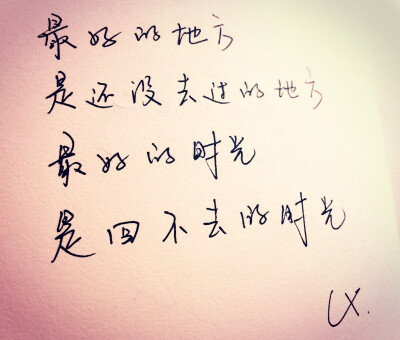 最好的地方
是还没去过的地方
最好的时光
是回不去的时光